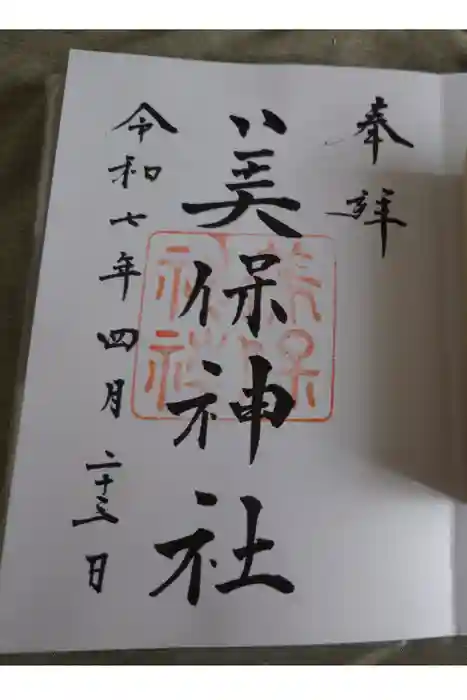 奉拝
美保神社
美保
神社
令和七年四月二十三日